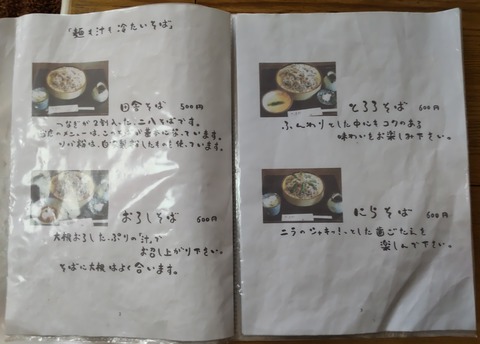 「麺も汁も冷たいそば」
田舎そば 500円
つなぎが2割入った、二八そばです。
のメニューは、このそばが基本になっています。
そば粉は、自家製粉したものを使っています。
おろしそば 600円
大根おろしたっぷりの「汁」で
お召し上がり下さい。
そばに大根はよく合います。
とろろそば 600円
ふんわりとした中にもコクのある
味わいをお楽しみ下さい。
にらそば 600円
ニラのシャキッ!とした歯ごたえを
楽しんで下さい。